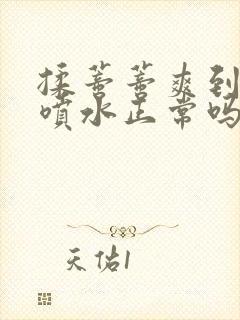 揉蒂蒂爽到
喷水正常吗
天佑1